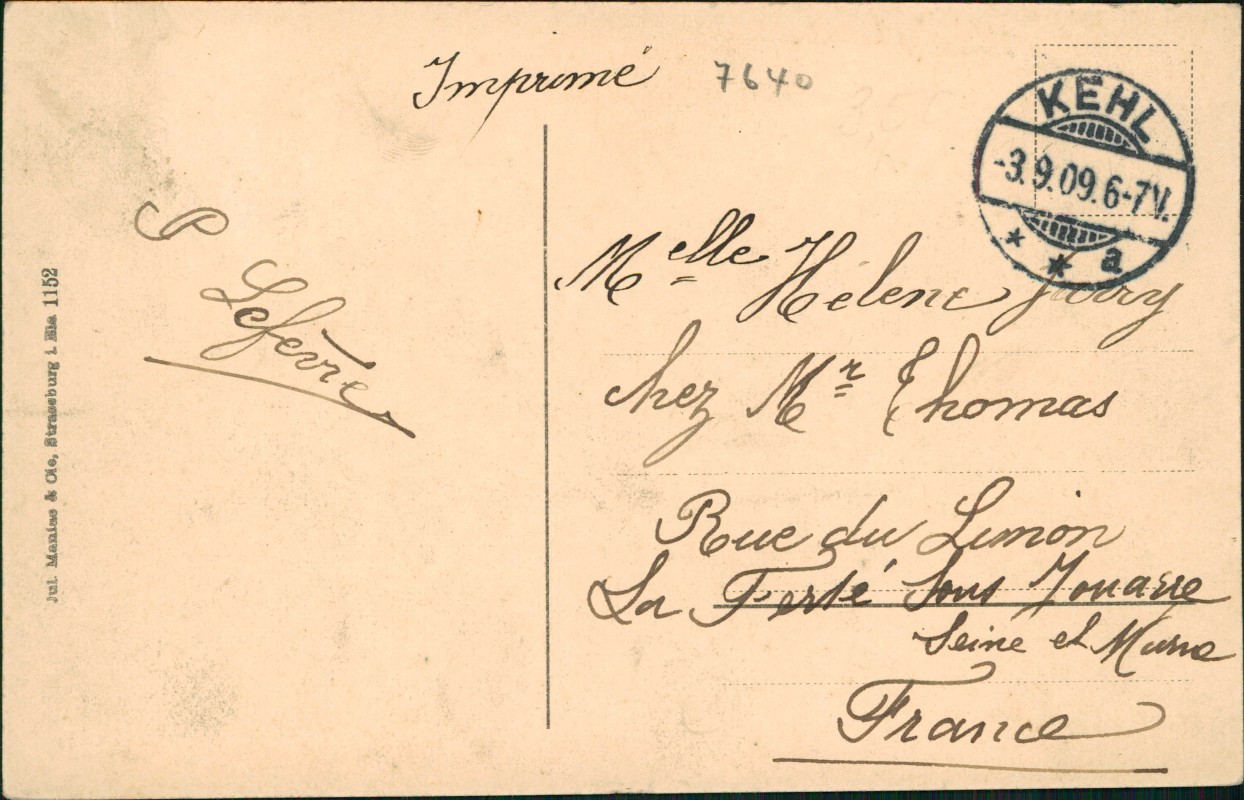 Imprimé
7640
KEHL
-3.9.09.6-7V.
* * a
P
Lefèvre
Melle Hélène
chez Mr Thomas
Rue du Limon
La Ferté Sous Jouarre
Seine et Marne
France
Jul. Manias & Cie, Strassburg i. Els 1152